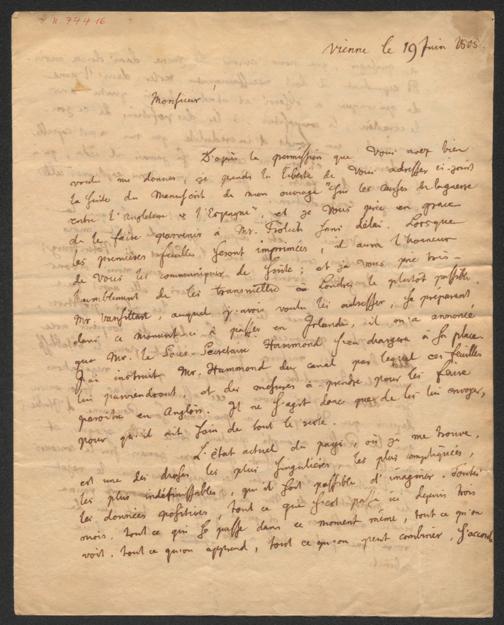 N. 744 16
Vienne le 19 Juin 1805.
Monsieur!
D'après la permission que Vous avez bien
voulu me donner, je prends la liberté de Vous adresser ci-joint
la suite du Manuscrit de mon ouvrage "Sur les causes de la guerre
entre l'Angleterre & l'Espagne", et je Vous prie en grace
de le faire parvenir à Mr. Frölich sans délai. Lorsque
les premières feuilles seront imprimées il aura l'honneur
de Vous les communiquer de suite; et je Vous prie très-
humblement de les transmettre à Londres le plutôt possible.
Mr. Vansittart, auquel j'avois voulu les adresser, se préparant
dans ce moment-ci à passer en Irlande, il m'a annoncé
que Mr. le Sous-Secretaire Hammond s'en chargera à Sa place.
J'ai instruit Mr. Hammond du canal par lequel ces feuilles
lui parviendront, et des mesures à prendre pour les faire
paroitre en Anglois. Il ne s'agit donc que de les lui envoyer,
pour qu'il ait soin de tout le reste.
L'état actuel du pays, où je me trouve,
est une des choses les plus singulières, les plus compliquées,
les plus indéfinissables, qu'il soit possible d'imaginer. Toutes
les données positives, tout ce que s'est passé ici depuis trois
mois, tout ce qui se passe dans ce moment même, tout ce qu'on
voit, tout ce qu'on apprend, tout ce qu'on peut combiner, s'accorde